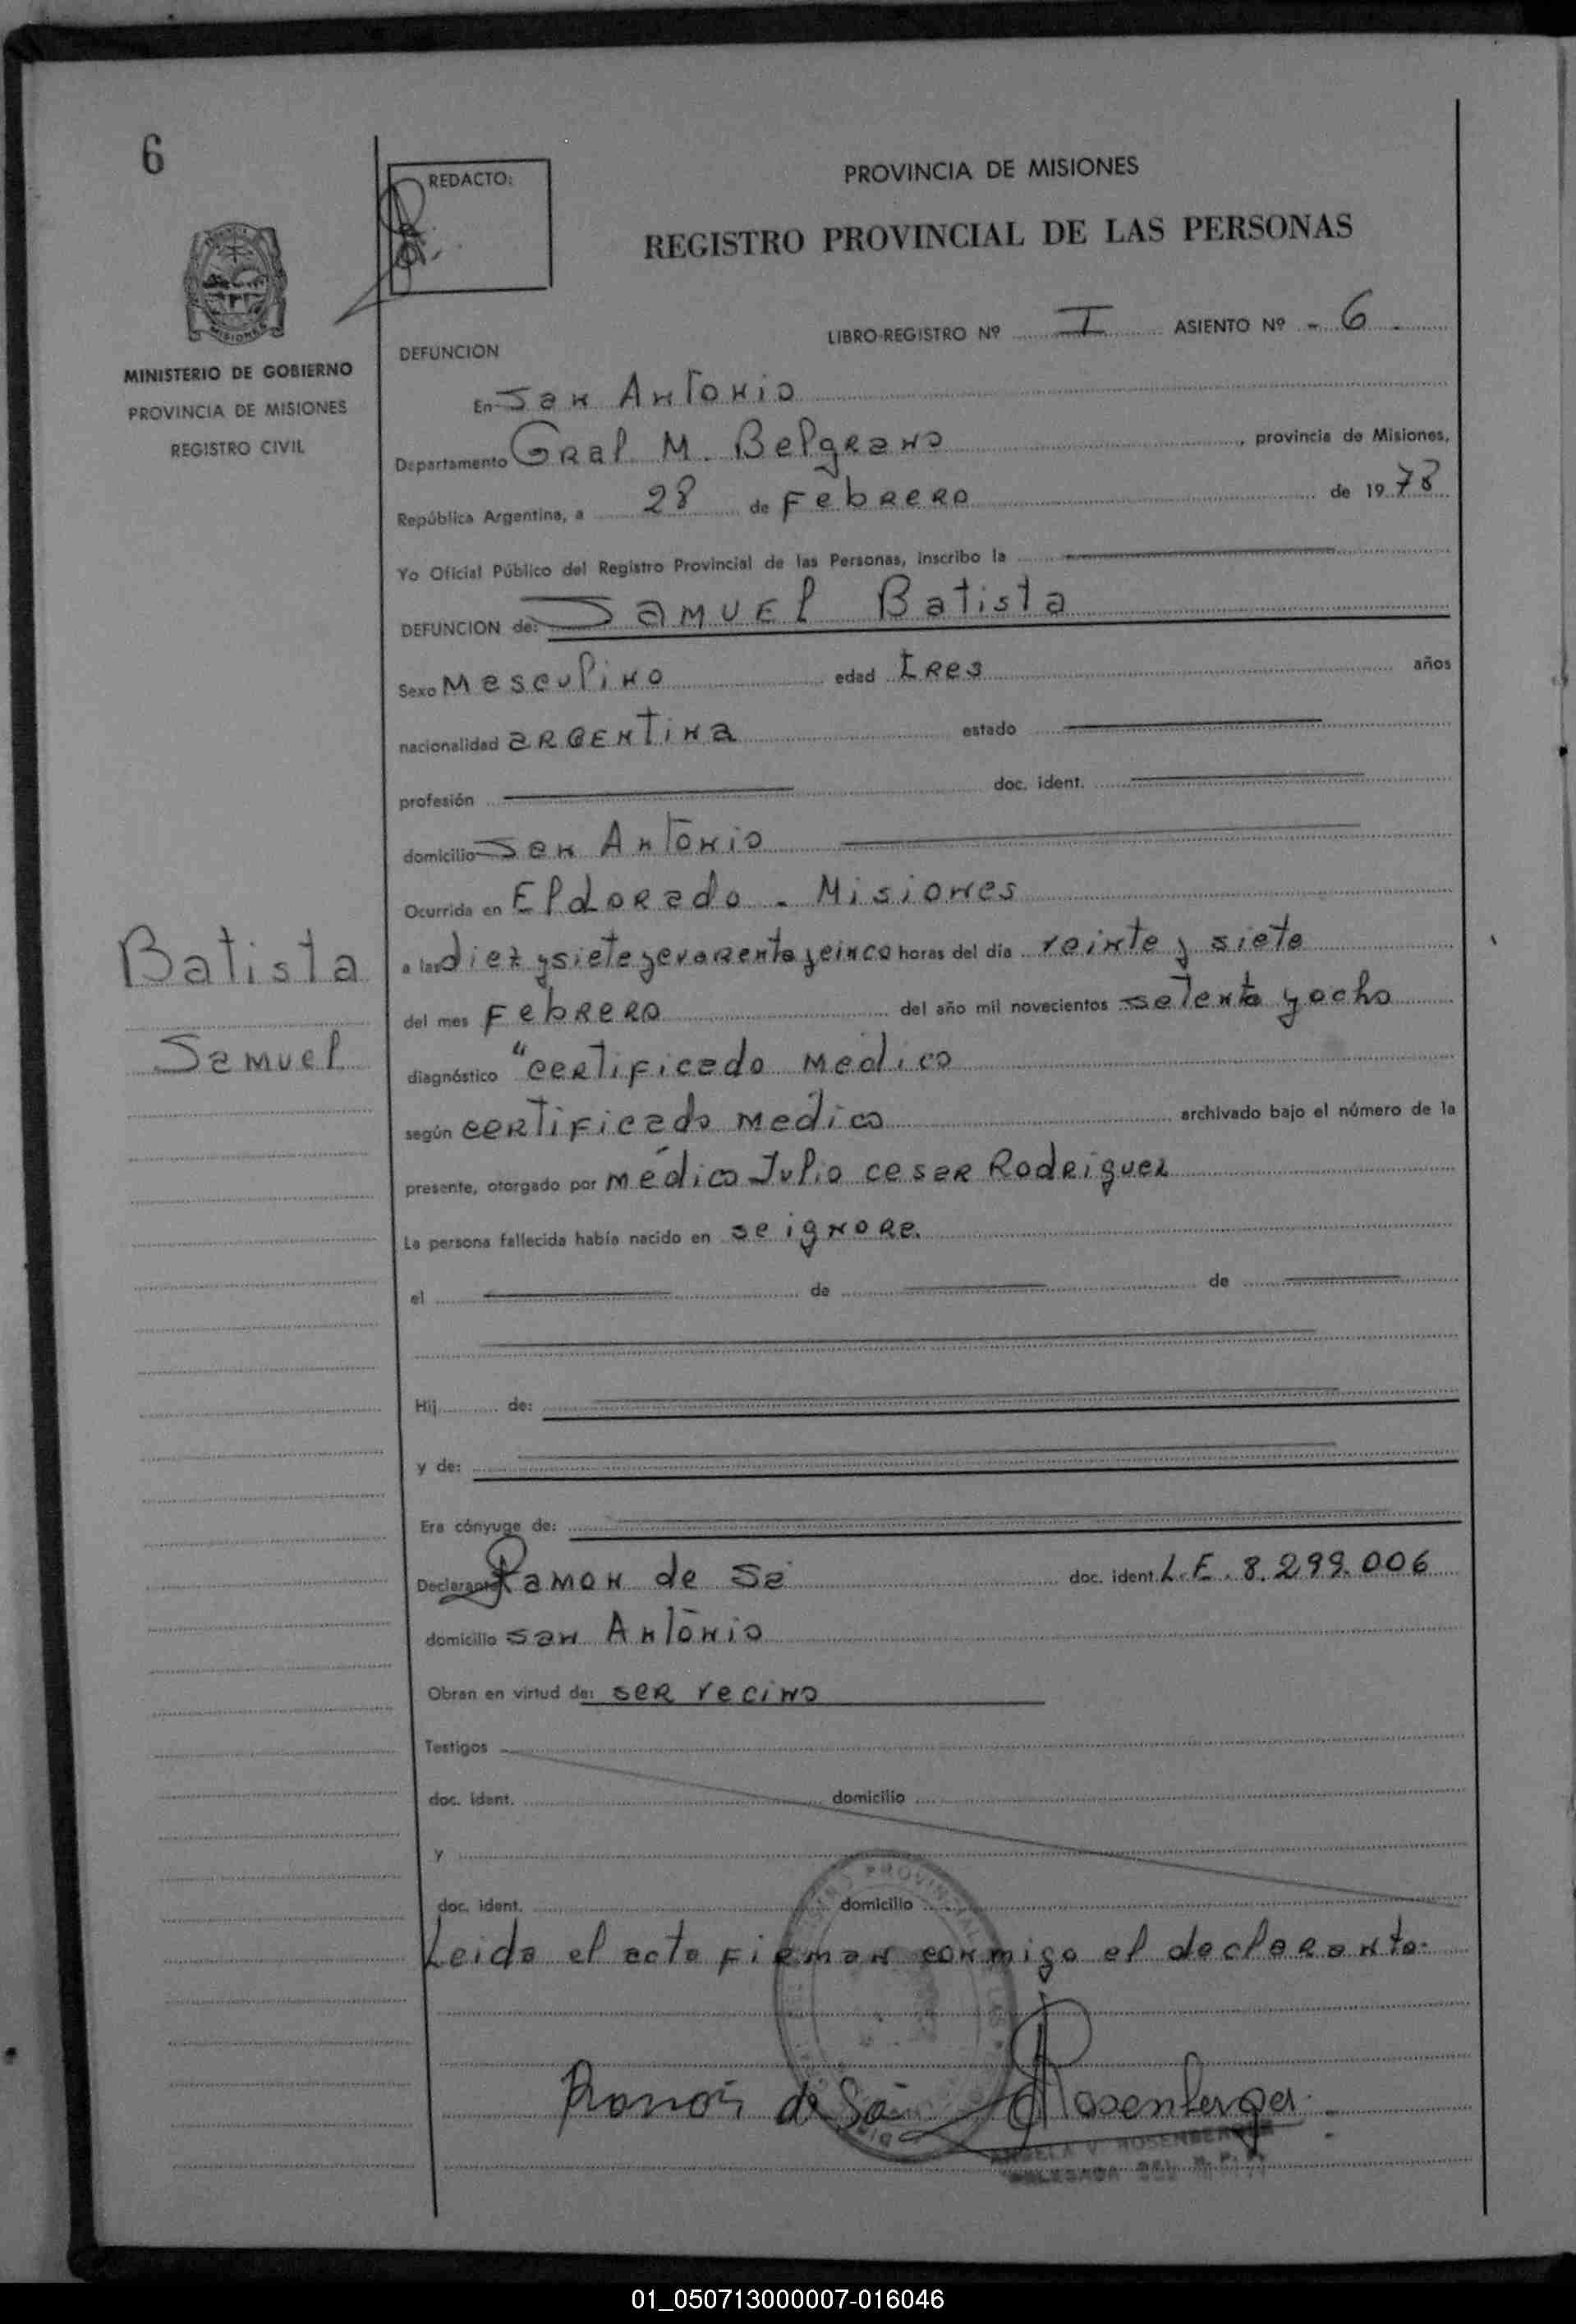 6
REDACTO:
PROVINCIA DE MISIONES
REGISTRO PROVINCIAL DE LAS PERSONAS
MISIONES
MINISTERIO DE GOBIERNO
PROVINCIA DE MISIONES
REGISTRO CIVIL
LIBRO-REGISTRO Nº I ASIENTO Nº - 6 .
DEFUNCION
En San Antonio
Departamento Gral M. Belgrano, provincia de Misiones,
República Argentina, a 28 de Febrero de 1978
Yo Oficial Público del Registro Provincial de las Personas, inscribo la
DEFUNCION de: Samuel Batista
Sexo Masculino edad tres años
nacionalidad argentina estado
profesión doc. ident.
domicilio San Antonio
Ocurrida en Eldorado - Misiones
Batista
a las diez y siete y cuarenta y cinco horas del día veinte y siete
del mes Febrero del año mil novecientos setenta y ocho
Samuel
diagnóstico "certificado medico
según certificado medico archivado bajo el número de la
presente, otorgado por médico Julio cesar Rodriguez
La persona fallecida había nacido en se ignora.
el de de
Hij de:
y de:
Era cónyuge de:
Declarante Ramon de Sa doc. ident. L.E. 8.299.006
domicilio san Antonio
Obran en virtud de: ser vecino
Testigos
doc. ident. domicilio
y
doc. ident. domicilio
Leida el acta firman conmigo el declarante.
Ramón de Sa Rosenberger
ANGELA V. ROSENBERGER
DELEGADA DEL R. P. P.
01_050713000007-016046